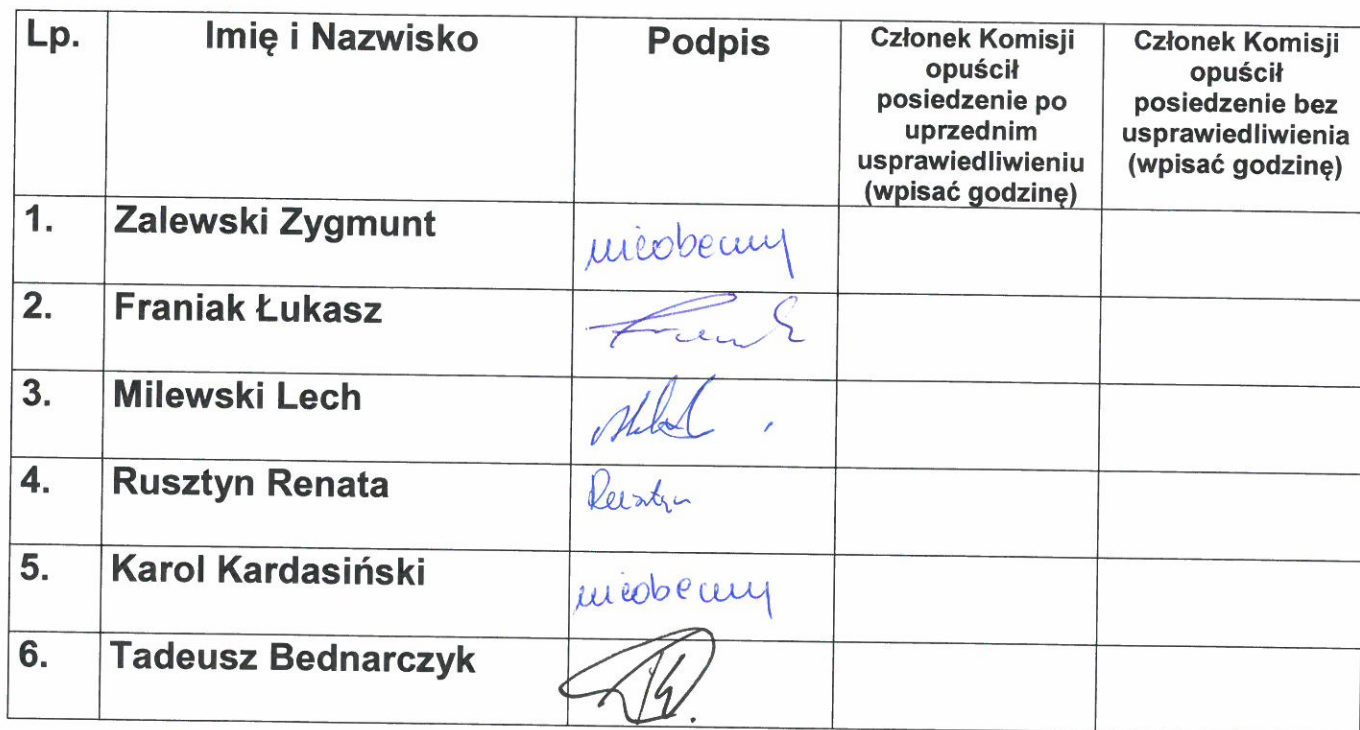 Lp. Imię i Nazwisko Podpis Członek Komisji opuścił posiedzenie po uprzednim usprawiedliwieniu (wpisać godzinę) Członek Komisji opuścił posiedzenie bez usprawiedliwienia (wpisać godzinę)
1. Zalewski Zygmunt nieobecny
2. Franiak Łukasz
3. Milewski Lech
4. Rusztyn Renata Rusztyn
5. Karol Kardasiński nieobecny
6. Tadeusz Bednarczyk